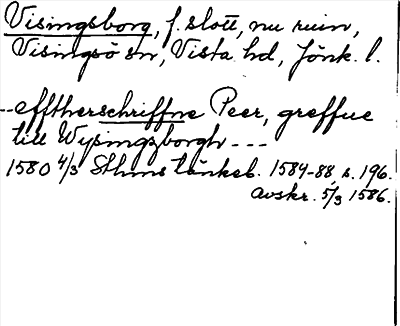 Visingsborg, f. slott, nu ruin,
Visingsö sn, Vista hd, Jönk. l.
--efftherschriffne Peer, greffue
till Wysingzborgh ---
1580 4/3 Sthms tänkeb. 1584-88 s. 196.
avskr. 5/3 1586.